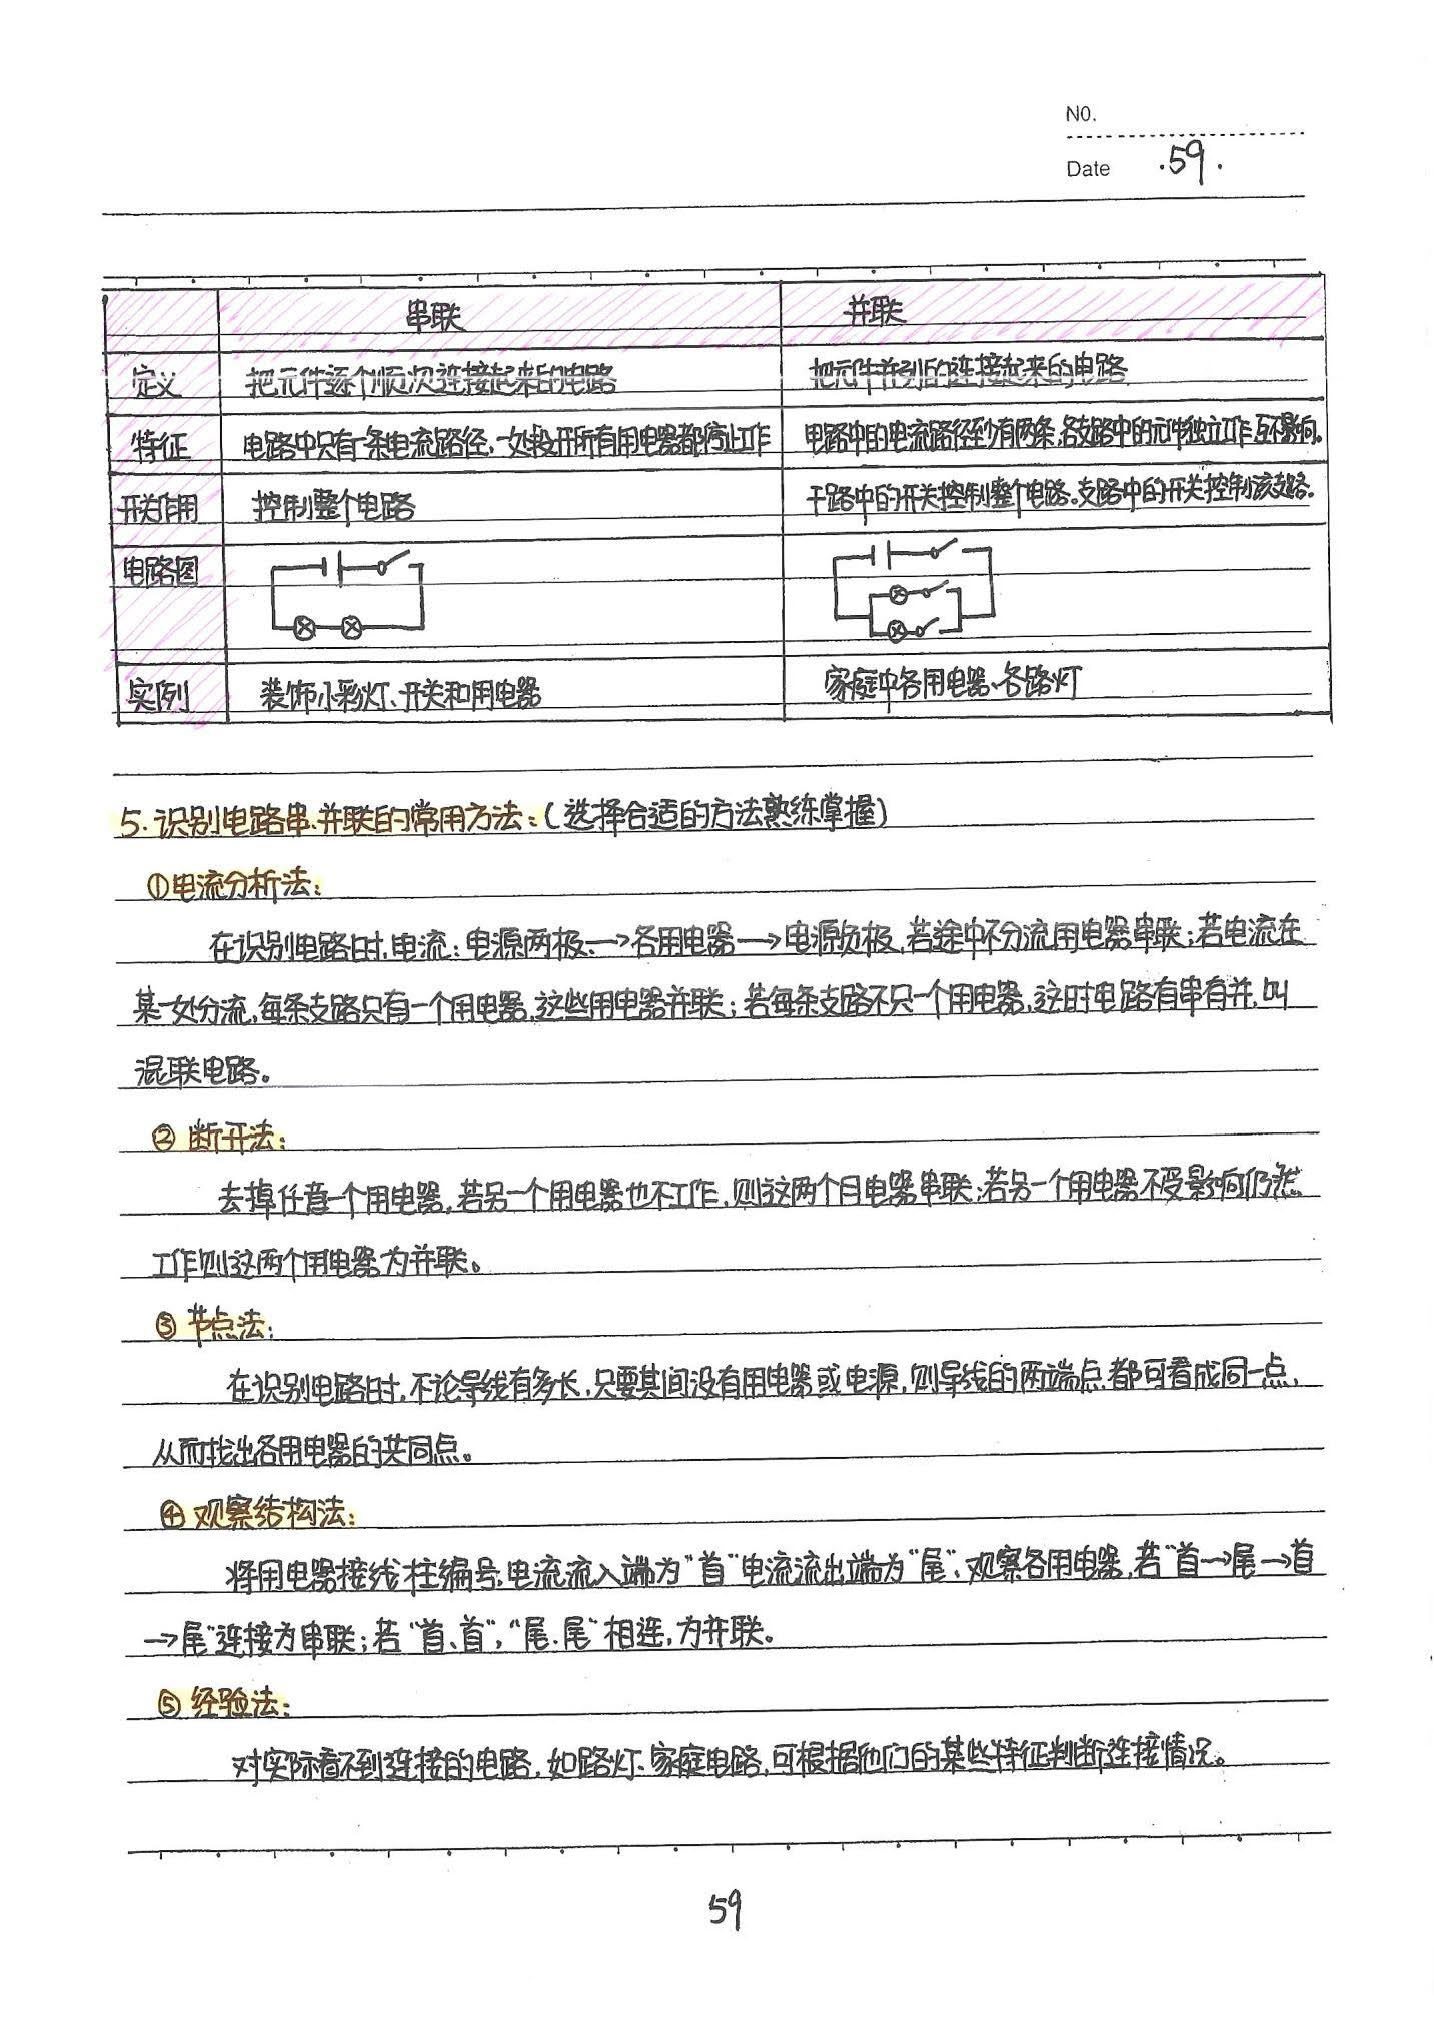 NO.
Date .59.
串联 并联
定义 把元件逐个顺次连接起来的电路 把元件并列的连接起来的电路
特征 电路中只有一条电流路径,一处断开所有用电器都停止工作 电路中的电流路径至少有两条,各支路中的元件独立工作互不影响。
开关作用 控制整个电路 干路中的开关控制整个电路。支路中的开关控制该支路。
电路图
实例 装饰小彩灯、开关和用电器 家庭中各用电器、各路灯
5.识别电路串、并联的常用方法:(选择合适的方法熟练掌握)
①电流分析法:
在识别电路时,电流:电源两极→各用电器→电源负极,若途中不分流用电器串联;若电流在
某一处分流,每条支路只有一个用电器,这些用电器并联;若每条支路不只一个用电器,这时电路有串有并,叫
混联电路。
②断开法:
去掉任意一个用电器,若另一个用电器也不工作,则这两个用电器串联;若另一个用电器不受影响仍然
工作则这两个用电器为并联。
③节点法:
在识别电路时,不论导线有多长,只要其间没有用电器或电源,则导线的两端点都可看成同一点,
从而找出各用电器的共同点。
④观察结构法:
将用电器接线柱编号,电流流入端为"首"电流流出端为"尾",观察各用电器,若"首→尾→首
→尾"连接为串联;若"首、首","尾、尾"相连,为并联。
⑤经验法:
对实际看不到连接的电路,如路灯、家庭电路,可根据他们的某些特征判断连接情况。
59